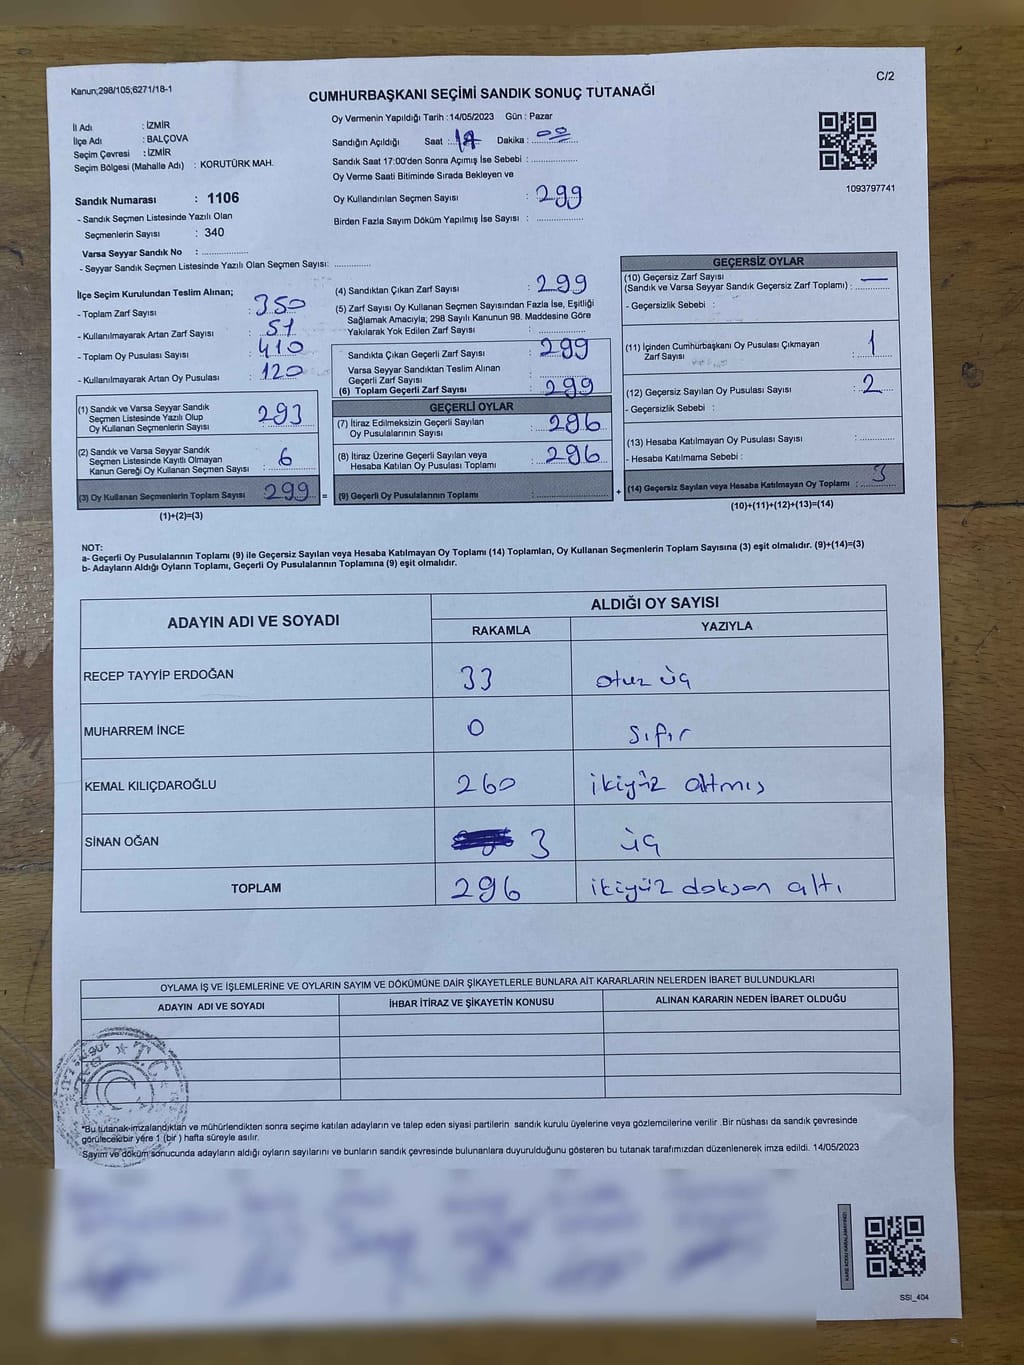 Kanun;298/105;6271/18-1
C/2
CUMHURBAŞKANI SEÇİMİ SANDIK SONUÇ TUTANAĞI
İl Adı : İZMİR
İlçe Adı : BALÇOVA
Seçim Çevresi : İZMİR
Seçim Bölgesi (Mahalle Adı) : KORUTÜRK MAH.
Oy Vermenin Yapıldığı Tarih : 14/05/2023 Gün : Pazar
Sandığın Açıldığı Saat : 17 Dakika : 00
Sandık Saat 17:00'den Sonra Açımış İse Sebebi :
Oy Verme Saati Bitiminde Sırada Bekleyen ve
Oy Kullandırılan Seçmen Sayısı : 299
Birden Fazla Sayım Döküm Yapılmış İse Sayısı :
1093797741
Sandık Numarası : 1106
- Sandık Seçmen Listesinde Yazılı Olan
Seçmenlerin Sayısı : 340
Varsa Seyyar Sandık No :
- Seyyar Sandık Seçmen Listesinde Yazılı Olan Seçmen Sayısı:
İlçe Seçim Kurulundan Teslim Alınan;
- Toplam Zarf Sayısı : 350
- Kullanılmayarak Artan Zarf Sayısı : 51
- Toplam Oy Pusulası Sayısı : 410
- Kullanılmayarak Artan Oy Pusulası : 120
(1) Sandık ve Varsa Seyyar Sandık
Seçmen Listesinde Yazılı Olup
Oy Kullanan Seçmenlerin Sayısı : 293
(2) Sandık ve Varsa Seyyar Sandık
Seçmen Listesinde Kayıtlı Olmayan
Kanun Gereği Oy Kullanan Seçmen Sayısı : 6
(3) Oy Kullanan Seçmenlerin Toplam Sayısı : 299 =
(1)+(2)=(3)
(4) Sandıktan Çıkan Zarf Sayısı : 299
(5) Zarf Sayısı Oy Kullanan Seçmen Sayısından Fazla İse, Eşitliği
Sağlamak Amacıyla; 298 Sayılı Kanunun 98. Maddesine Göre
Yakılarak Yok Edilen Zarf Sayısı :
Sandıkta Çıkan Geçerli Zarf Sayısı : 299
Varsa Seyyar Sandıktan Teslim Alınan
Geçerli Zarf Sayısı :
(6) Toplam Geçerli Zarf Sayısı : 299
GEÇERLİ OYLAR
(7) İtiraz Edilmeksizin Geçerli Sayılan
Oy Pusulalarının Sayısı : 296
(8) İtiraz Üzerine Geçerli Sayılan veya
Hesaba Katılan Oy Pusulası Toplamı : 296
(9) Geçerli Oy Pusulalarının Toplamı : +
GEÇERSİZ OYLAR
(10) Geçersiz Zarf Sayısı
(Sandık ve Varsa Seyyar Sandık Geçersiz Zarf Toplamı) : —
- Geçersizlik Sebebi :
(11) İçinden Cumhurbaşkanı Oy Pusulası Çıkmayan
Zarf Sayısı : 1
(12) Geçersiz Sayılan Oy Pusulası Sayısı : 2
- Geçersizlik Sebebi :
(13) Hesaba Katılmayan Oy Pusulası Sayısı :
- Hesaba Katılmama Sebebi :
(14) Geçersiz Sayılan veya Hesaba Katılmayan Oy Toplamı : 3
(10)+(11)+(12)+(13)=(14)
NOT:
a- Geçerli Oy Pusulalarının Toplamı (9) ile Geçersiz Sayılan veya Hesaba Katılmayan Oy Toplamı (14) Toplamları, Oy Kullanan Seçmenlerin Toplam Sayısına (3) eşit olmalıdır. (9)+(14)=(3)
b- Adayların Aldığı Oyların Toplamı, Geçerli Oy Pusulalarının Toplamına (9) eşit olmalıdır.
ADAYIN ADI VE SOYADI
ALDIĞI OY SAYISI
RAKAMLA YAZIYLA
RECEP TAYYİP ERDOĞAN 33 otuz üç
MUHARREM İNCE 0 sıfır
KEMAL KILIÇDAROĞLU 260 ikiyüz altmış
SİNAN OĞAN 3 üç
TOPLAM 296 ikiyüz doksan altı
OYLAMA İŞ VE İŞLEMLERİNE VE OYLARIN SAYIM VE DÖKÜMÜNE DAİR ŞİKAYETLERLE BUNLARA AİT KARARLARIN NELERDEN İBARET BULUNDUKLARI
ADAYIN ADI VE SOYADI İHBAR İTİRAZ VE ŞİKAYETİN KONUSU ALINAN KARARIN NEDEN İBARET OLDUĞU
T.C.
*Bu tutanak imzalandıktan ve mühürlendikten sonra seçime katılan adayların ve talep eden siyasi partilerin sandık kurulu üyelerine veya gözlemcilerine verilir .Bir nüshası da sandık çevresinde
görülecek bir yere 1 (bir ) hafta süreyle asılır.
Sayım ve döküm sonucunda adayların aldığı oyların sayılarını ve bunların sandık çevresinde bulunanlara duyurulduğunu gösteren bu tutanak tarafımızdan düzenlenerek imza edildi. 14/05/2023
KARE KODU KARALAMAYINIZ!
SSI_404